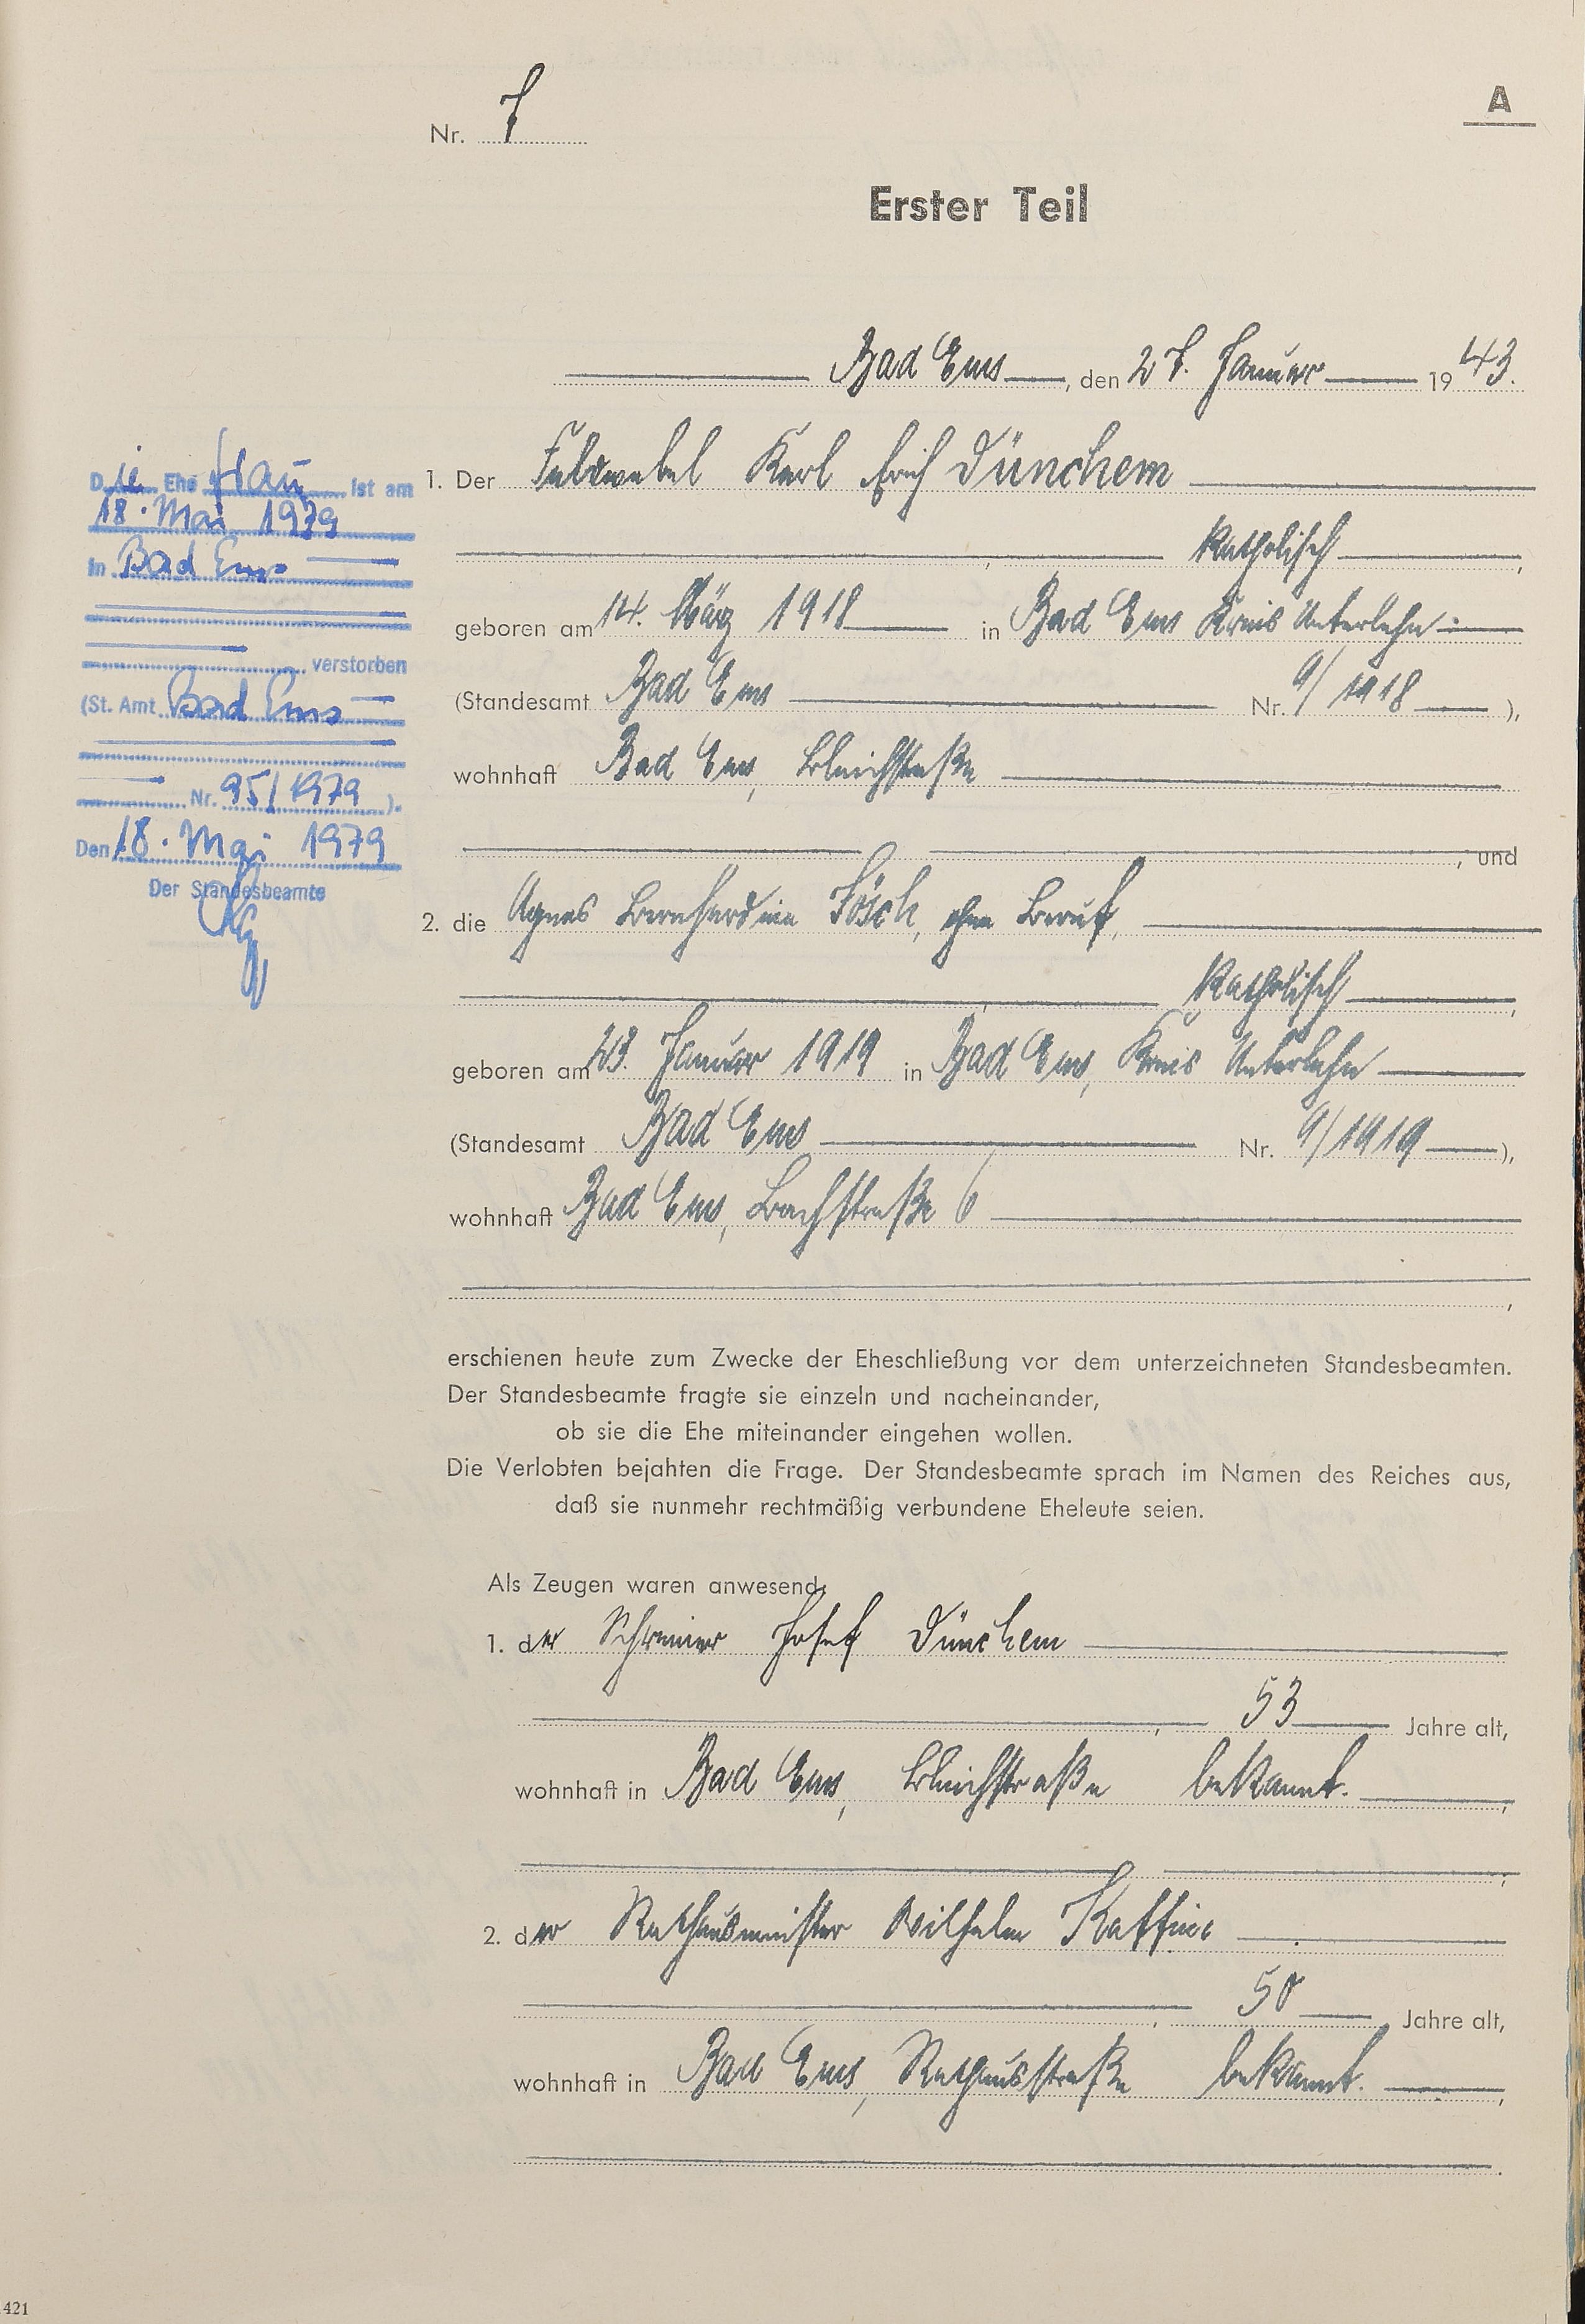 A
Nr. 7
Erster Teil
Bad Ems, den 27. Januar 1943.
1. Der Feldwebel Karl Erich Dünchem
katholisch,
geboren am 14. März 1918 in Bad Ems Kreis Unterlahn
(Standesamt Bad Ems Nr. 9/1918),
wohnhaft Bad Ems, Bleichstraße
, und
2. die Agnes Bernhardine Lösch, ohne Beruf,
katholisch,
geboren am 23. Januar 1919 in Bad Ems, Kreis Unterlahn
(Standesamt Bad Ems Nr. 9/1919),
wohnhaft Bad Ems, Bachstraße 6
,
erschienen heute zum Zwecke der Eheschließung vor dem unterzeichneten Standesbeamten.
Der Standesbeamte fragte sie einzeln und nacheinander,
ob sie die Ehe miteinander eingehen wollen.
Die Verlobten bejahten die Frage. Der Standesbeamte sprach im Namen des Reiches aus,
daß sie nunmehr rechtmäßig verbundene Eheleute seien.
Als Zeugen waren anwesend:
1. der Schreiner Josef Dünchem
, 53 Jahre alt,
wohnhaft in Bad Ems, Bleichstraße bekannt.
2. der Rathausmeister Wilhelm
, 50 Jahre alt,
wohnhaft in Bad Ems, Rathausstraße bekannt.
Die Ehefrau ist am
18. Mai 1979
in Bad Ems
verstorben
(St. Amt Bad Ems
Nr. 95/1979).
Den 18. Mai 1979
Der Standesbeamte
421